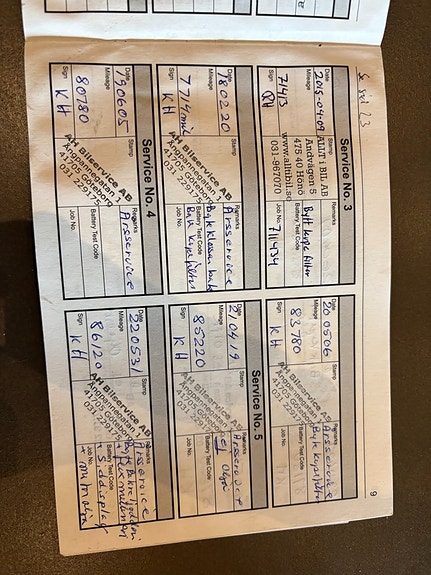 Se sid 23
Service No. 3
Date
2015-04-09
Mileage
71413
Sign
Stamp
ALLT i BIL AB
Andvägen 5
475 40 Hönö
www.alltibil.se
031-967070
Remarks
Bytt kupefilter
Battery Test Code
Job No.
711434
Date
180220
Mileage
7714 mil
Sign
KH
Stamp
AH Bilservice AB
Ångpannegatan 1
417 05 Göteborg
031 229175
Remarks
Årsservice
Byt kupefilter
Battery Test Code
Job No.
Service No. 4
Date
190605
Mileage
80780
Sign
KH
Stamp
AH Bilservice AB
Ångpannegatan 1
417 05 Göteborg
031 229175
Remarks
Årsservice
Battery Test Code
Job No.
9
Date
200506
Mileage
83780
Sign
KH
Stamp
AH Bilservice AB
Ångpannegatan 1
417 05 Göteborg
031 229175
Remarks
Årsservice
Byt kupefilter
Battery Test Code
Job No.
Service No. 5
Date
210419
Mileage
85220
Sign
KH
Stamp
AH Bilservice AB
Ångpannegatan 1
417 05 Göteborg
031 229175
Remarks
Årsservice
ej olja
Battery Test Code
Job No.
Date
220531
Mileage
86120
Sign
KH
Stamp
AH Bilservice AB
Ångpannegatan 1
417 05 Göteborg
031 229175
Remarks
Årsservice
Byt Bakre ljuddämp
Battery Test Code
+ S.display
Job No.